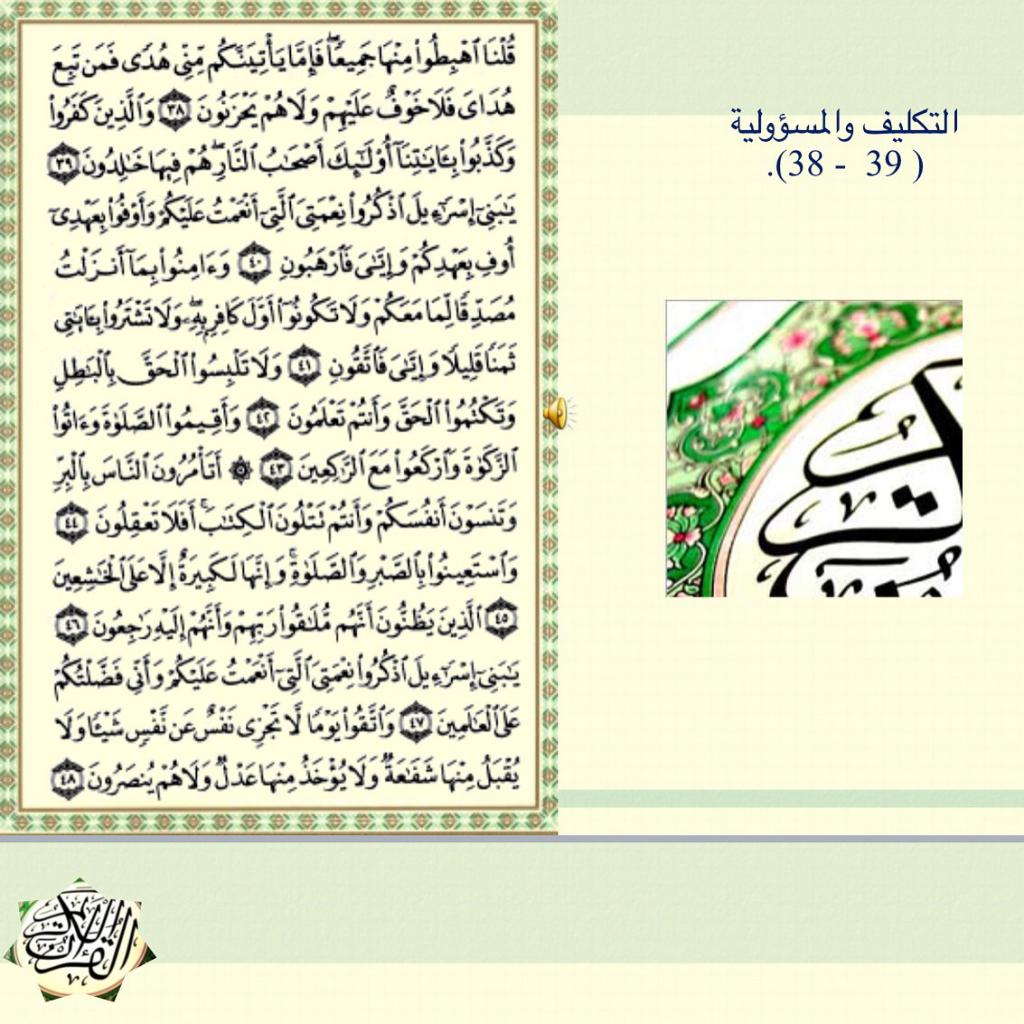 قُلْنَا ٱهْبِطُوا۟ مِنْهَا جَمِيعًا ۖ فَإِمَّا يَأْتِيَنَّكُم مِّنِّى هُدًى فَمَن تَبِعَ
هُدَاىَ فَلَا خَوْفٌ عَلَيْهِمْ وَلَا هُمْ يَحْزَنُونَ ٣٨ وَٱلَّذِينَ كَفَرُوا۟
وَكَذَّبُوا۟ بِـَٔايَـٰتِنَآ أُو۟لَـٰٓئِكَ أَصْحَـٰبُ ٱلنَّارِ ۖ هُمْ فِيهَا خَـٰلِدُونَ ٣٩
يَـٰبَنِىٓ إِسْرَٰٓءِيلَ ٱذْكُرُوا۟ نِعْمَتِىَ ٱلَّتِىٓ أَنْعَمْتُ عَلَيْكُمْ وَأَوْفُوا۟ بِعَهْدِىٓ
أُوفِ بِعَهْدِكُمْ وَإِيَّـٰىَ فَٱرْهَبُونِ ٤٠ وَءَامِنُوا۟ بِمَآ أَنزَلْتُ
مُصَدِّقًا لِّمَا مَعَكُمْ وَلَا تَكُونُوٓا۟ أَوَّلَ كَافِرٍۭ بِهِۦ ۖ وَلَا تَشْتَرُوا۟ بِـَٔايَـٰتِى
ثَمَنًا قَلِيلًا وَإِيَّـٰىَ فَٱتَّقُونِ ٤١ وَلَا تَلْبِسُوا۟ ٱلْحَقَّ بِٱلْبَـٰطِلِ
وَتَكْتُمُوا۟ ٱلْحَقَّ وَأَنتُمْ تَعْلَمُونَ ٤٢ وَأَقِيمُوا۟ ٱلصَّلَوٰةَ وَءَاتُوا۟
ٱلزَّكَوٰةَ وَٱرْكَعُوا۟ مَعَ ٱلرَّٰكِعِينَ ٤٣ ۞ أَتَأْمُرُونَ ٱلنَّاسَ بِٱلْبِرِّ
وَتَنسَوْنَ أَنفُسَكُمْ وَأَنتُمْ تَتْلُونَ ٱلْكِتَـٰبَ ۚ أَفَلَا تَعْقِلُونَ ٤٤
وَٱسْتَعِينُوا۟ بِٱلصَّبْرِ وَٱلصَّلَوٰةِ ۚ وَإِنَّهَا لَكَبِيرَةٌ إِلَّا عَلَى ٱلْخَـٰشِعِينَ
٤٥ ٱلَّذِينَ يَظُنُّونَ أَنَّهُم مُّلَـٰقُوا۟ رَبِّهِمْ وَأَنَّهُمْ إِلَيْهِ رَٰجِعُونَ ٤٦
يَـٰبَنِىٓ إِسْرَٰٓءِيلَ ٱذْكُرُوا۟ نِعْمَتِىَ ٱلَّتِىٓ أَنْعَمْتُ عَلَيْكُمْ وَأَنِّى فَضَّلْتُكُمْ
عَلَى ٱلْعَـٰلَمِينَ ٤٧ وَٱتَّقُوا۟ يَوْمًا لَّا تَجْزِى نَفْسٌ عَن نَّفْسٍ شَيْـًٔا وَلَا
يُقْبَلُ مِنْهَا شَفَـٰعَةٌ وَلَا يُؤْخَذُ مِنْهَا عَدْلٌ وَلَا هُمْ يُنصَرُونَ ٤٨
التكليف والمسؤولية
( 39 - 38).
القرآن الكريم